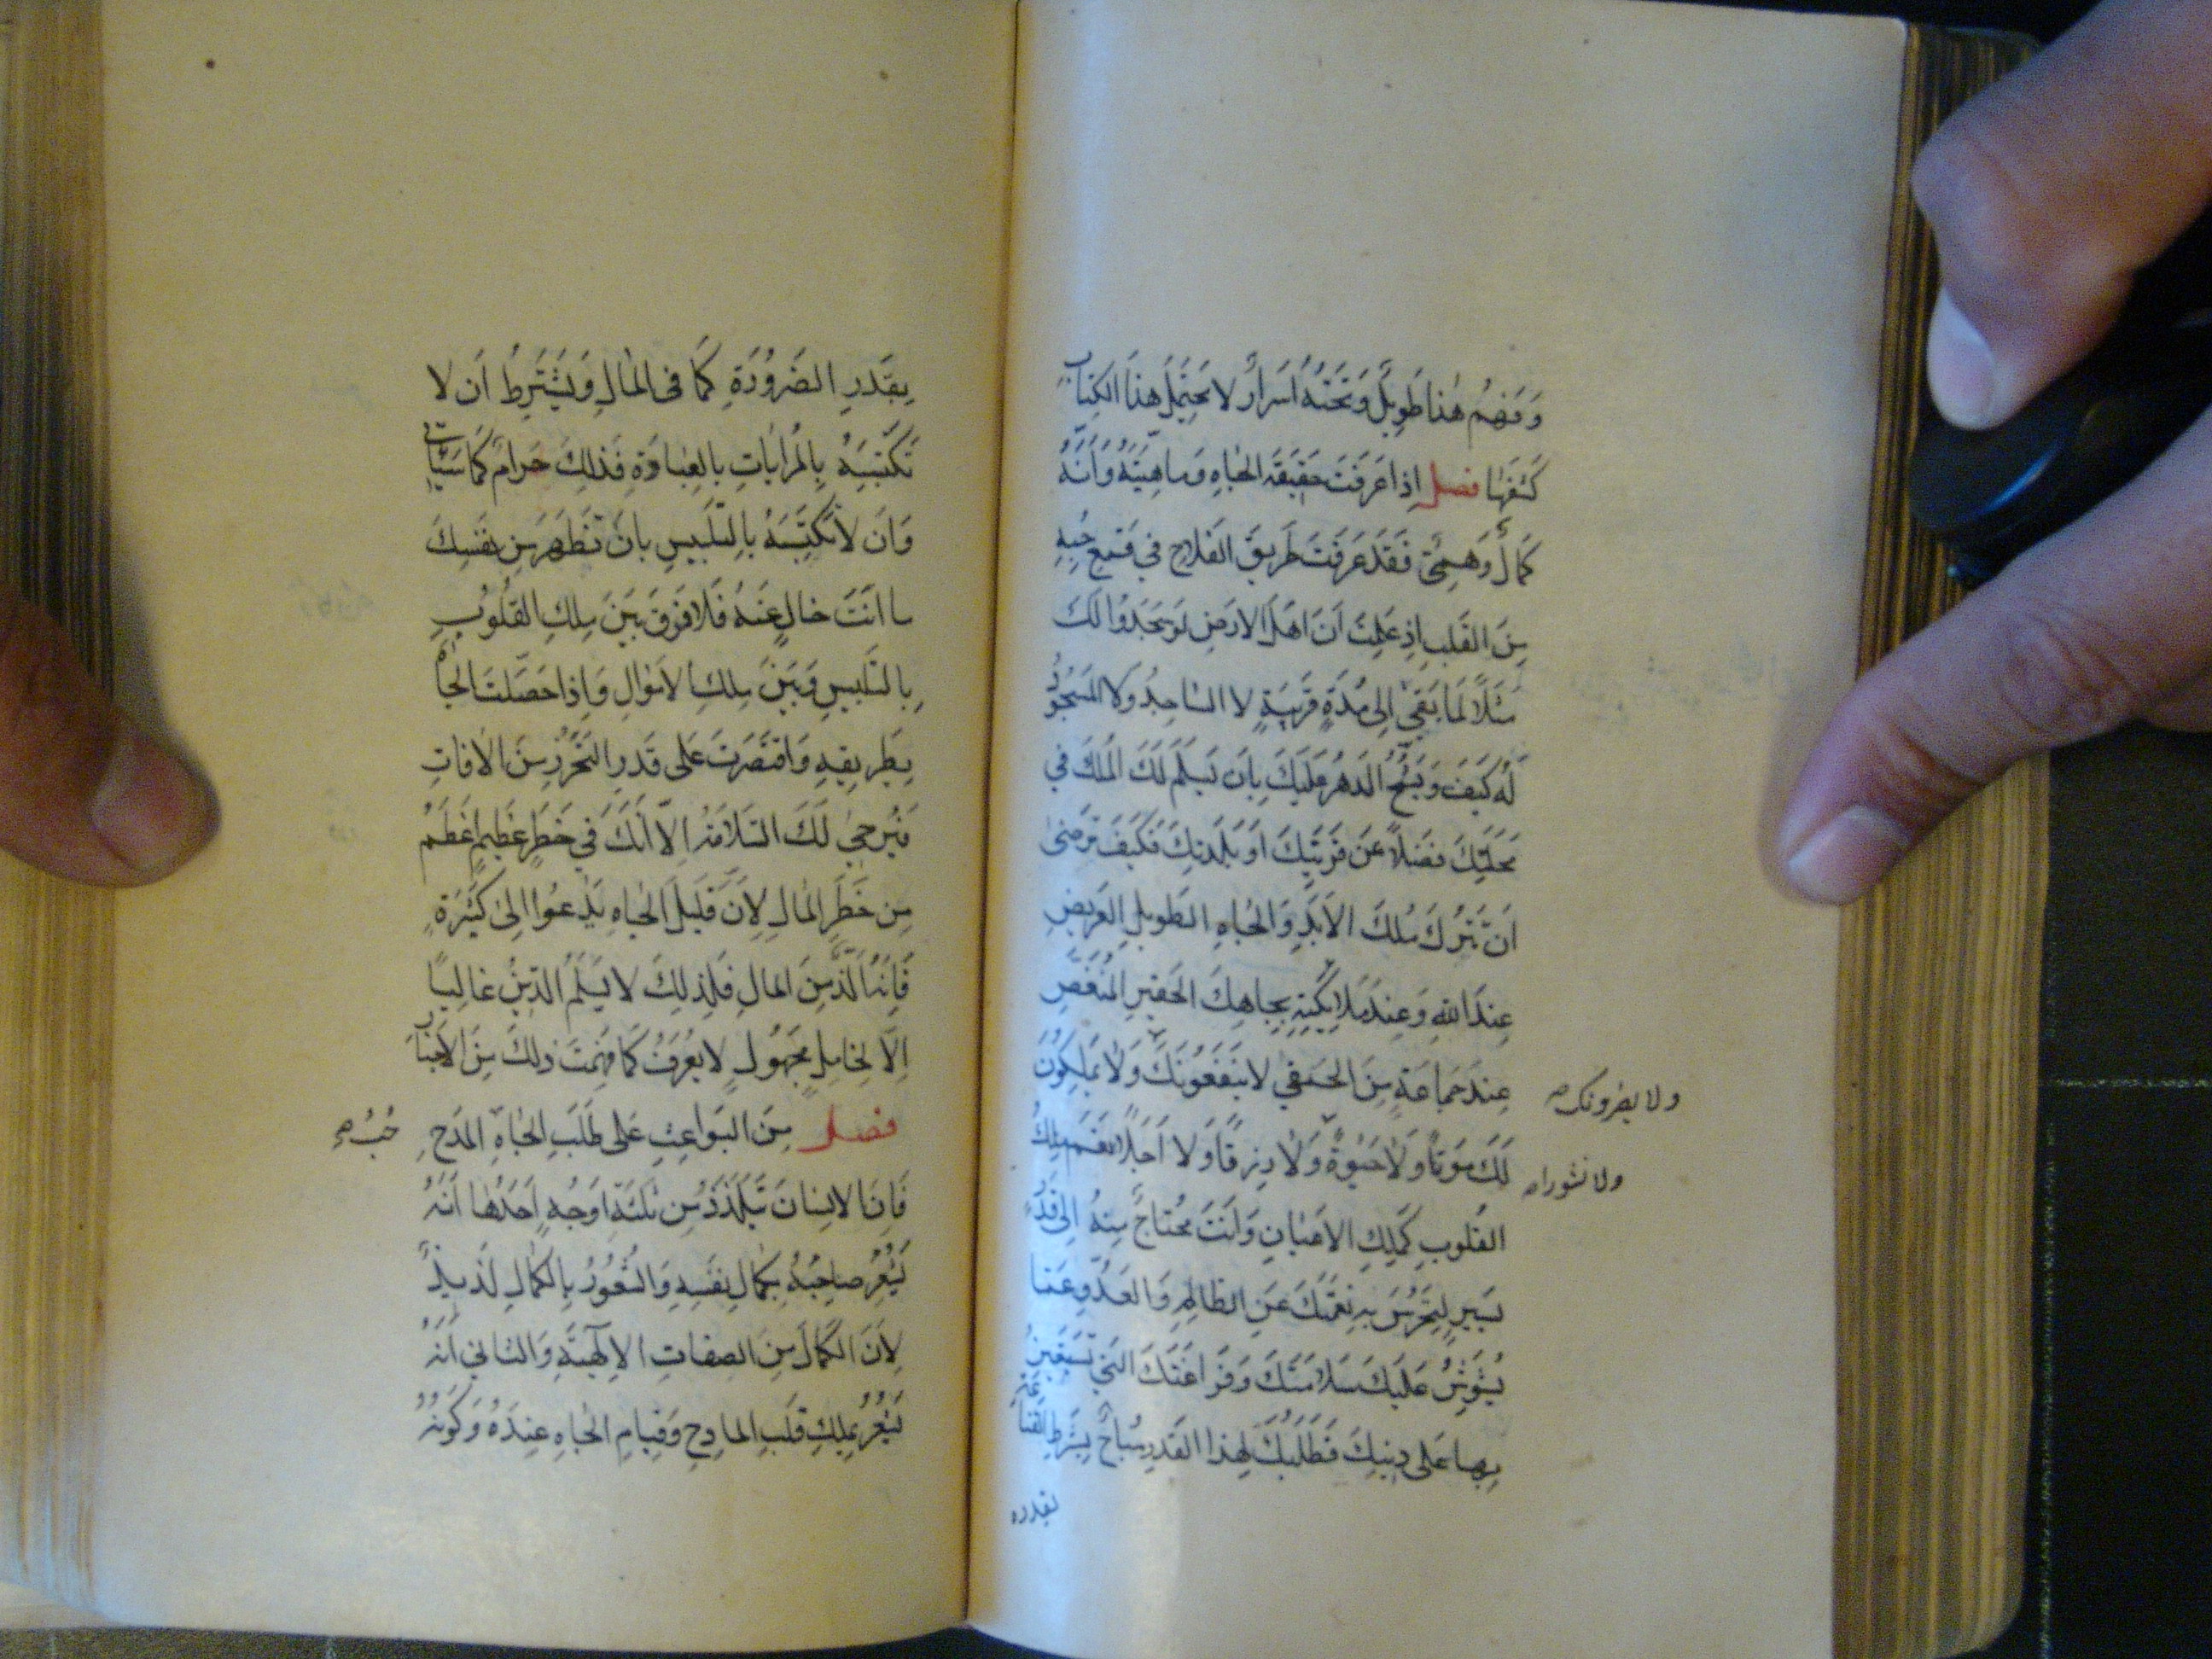 وَفَهْمُ هٰذَا طَوِيلٌ وَتَحْتَهُ اَسْرَارٌ لَا يَحْتَمِلُ هٰذَا الْكِتَابُ
كَشْفَهَا فصل اِذَا عَرَفْتَ حَقِيقَةَ الْجَاهِ وَمَاهِيَّتَهُ وَاَنَّهُ
كَمَالٌ وَهْمِيٌّ فَقَدْ عَرَفْتَ طَرِيقَ الْعِلَاجِ فِي قَمْعِ حُبِّهِ
مِنَ الْقَلْبِ اِذْ عَلِمْتَ اَنَّ اَهْلَ الْاَرْضِ لَوْ سَجَدُوا لَكَ
مَثَلًا لَمَا بَقِيَ اِلَى مُدَّةٍ قَرِيبَةٍ لَا السَّاجِدُ وَلَا الْمَسْجُودُ
لَهُ كَيْفَ وَيَشُحُّ الدَّهْرُ عَلَيْكَ بِاَنْ يَسْلَمَ لَكَ الْمُلْكُ فِي
مَحَلَّتِكَ فَضْلًا عَنْ قَرْيَتِكَ اَوْ بَلْدَتِكَ فَكَيْفَ تَرْضَى
اَنْ تَتْرُكَ مُلْكَ الْاَبَدِ وَالْجَاهِ الطَّوِيلِ الْعَرِيضِ
عِنْدَ اللّٰهِ وَعِنْدَ مَلَائِكَتِهِ بِجَاهِكَ الْحَقِيرِ الْمُنَغَّصِ
عِنْدَ جَمَاعَةٍ مِنَ الْحَمْقَى لَا يَنْفَعُونَكَ وَلَا يَمْلِكُونَ
ولا يضرونك صح
لَكَ مَوْتًا وَلَا حَيٰوةً وَلَا رِزْقًا وَلَا اَجَلًا نَعَمْ مِلْكُ
ولا نشورا صح
الْقُلُوبِ كَمِلْكِ الْاَعْيَانِ وَاَنْتَ مُحْتَاجٌ مِنْهُ اِلَى قَدْرٍ
يَسِيرٍ لِتَحْرُسَ بِهِ نِعْمَتَكَ عَنِ الظَّالِمِ وَالْعَدُوِّ عَمَّا
يُشَوِّشُ عَلَيْكَ سَلَامَتَكَ وَفَرَاغَتَكَ الَّتِي تَسْتَعِينُ
بِهَا عَلَى دِينِكَ فَطَلَبُكَ لِهٰذَا الْقَدْرِ مُبَاحٌ بِشَرْطِ الْقَنَاعَةِ
بقدره
بِقَدْرِ الضَّرُورَةِ كَمَا فِي الْمَالِ وَيُشْتَرَطُ اَنْ لَا
تَكْتَسِبَهُ بِالْمُرَايَاتِ بِالْعِبَادَةِ فَذٰلِكَ حَرَامٌ كَمَا سَيَأْتِي
وَاَنْ لَا تَكْتَسِبَهُ بِالتَّلْبِيسِ بِاَنْ تُظْهِرَ مِنْ نَفْسِكَ
مَا اَنْتَ خَالٍ عَنْهُ فَلَا فَرْقَ بَيْنَ مِلْكِ الْقُلُوبِ
بِالتَّلْبِيسِ وَبَيْنَ مِلْكِ الْاَمْوَالِ وَاِذَا حَصَّلْتَ الْجَاهَ
بِطَرِيقِهِ وَاقْتَصَرْتَ عَلَى قَدْرِ التَّحَرُّزِ مِنَ الْاٰفَاتِ
فَيُرْجَى لَكَ السَّلَامَةُ اِلَّا اَنَّكَ فِي خَطَرٍ عَظِيمٍ اَعْظَمُ
مِنْ خَطَرِ الْمَالِ لِاَنَّ قَلِيلَ الْجَاهِ يَدْعُوا اِلَى كَثِيرَةٍ
فَاِنَّهُ اَلَذُّ مِنَ الْمَالِ فَلِذٰلِكَ لَا يَسْلَمُ الدِّينُ غَالِبًا
اِلَّا لِخَامِلٍ مَجْهُولٍ لَا يُعْرَفُ كَمَا فَهِمْتَ ذٰلِكَ مِنَ الْاَخْبَارِ
فصل مِنَ الْبَوَاعِثِ عَلَى طَلَبِ الْجَاهِ الْمَدْحِ
حُبُّ صح
فَاِنَّ الْاِنْسَانَ يَتَلَذَّذُ مِنْ ثَلٰثَةِ اَوْجُهٍ اَحَدُهَا اَنَّهُ
يَشْعُرُ صَاحِبُهُ بِكَمَالِ نَفْسِهِ وَالشُّعُورُ بِالْكَمَالِ لَذِيذٌ
لِاَنَّ الْكَمَالَ مِنَ الصِّفَاتِ الْاِلٰهِيَّةِ وَالثَّانِي اَنَّهُ
يَشْعُرُ بِمِلْكِ قَلْبِ الْمَادِحِ وَقِيَامِ الْجَاهِ عِنْدَهُ وَكَوْنُهُ